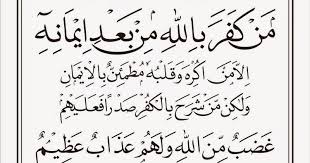 مَن كَفَرَ بِاللهِ مِنْ بَعْدِ اِيْمَانِهٖ
اِلَّا مَنْ اُكْرِهَ وَقَلْبُهٗ مُطْمَئِنٌّ بِالْاِيْمَانِ
وَلٰكِنْ مَّنْ شَرَحَ بِالْكُفْرِ صَدْرًا فَعَلَيْهِمْ
غَضَبٌ مِّنَ اللهِ وَلَهُمْ عَذَابٌ عَظِيْمٌ